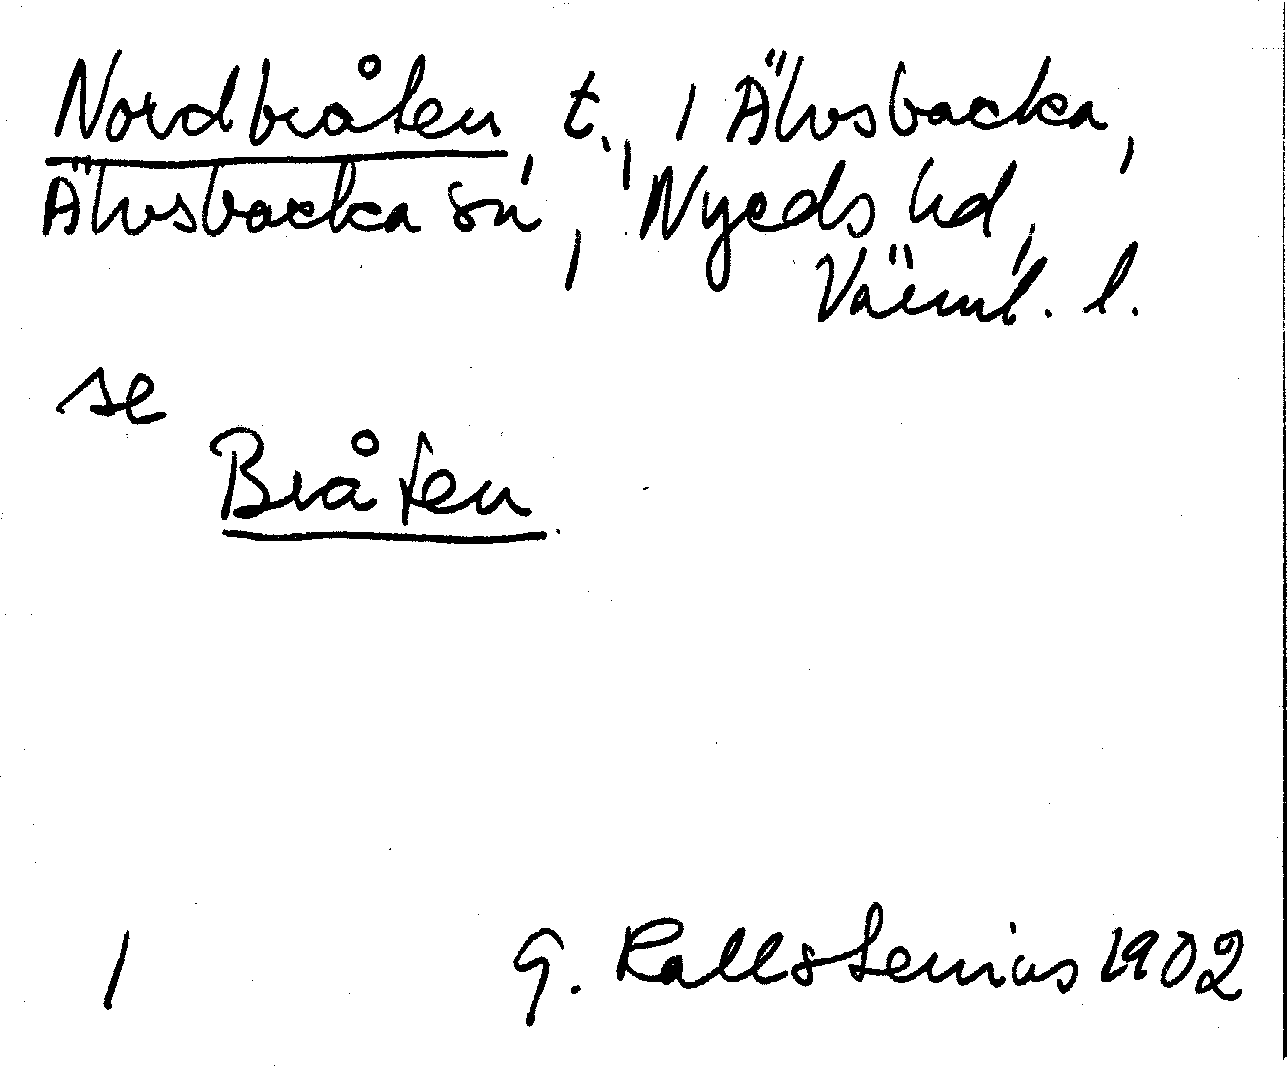 Nordbråten, t., / Älvsbacka,
Älvsbacka sn, Nyeds hd,
Värml. l.
se
Bråten
/ G. Kallstenius 1902